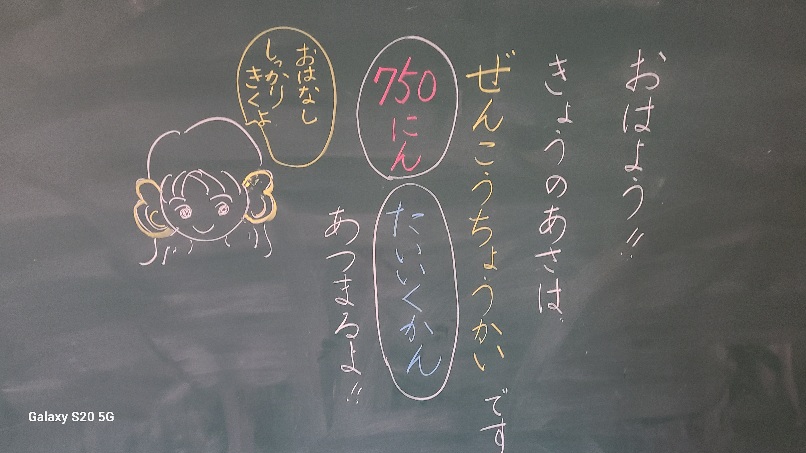 おはよう!!
きょうのあさは
ぜんこうちょうかいです
750にん
たいいくかん
あつまるよ!!
おはなし
しっかり
きくよ
Galaxy S20 5G